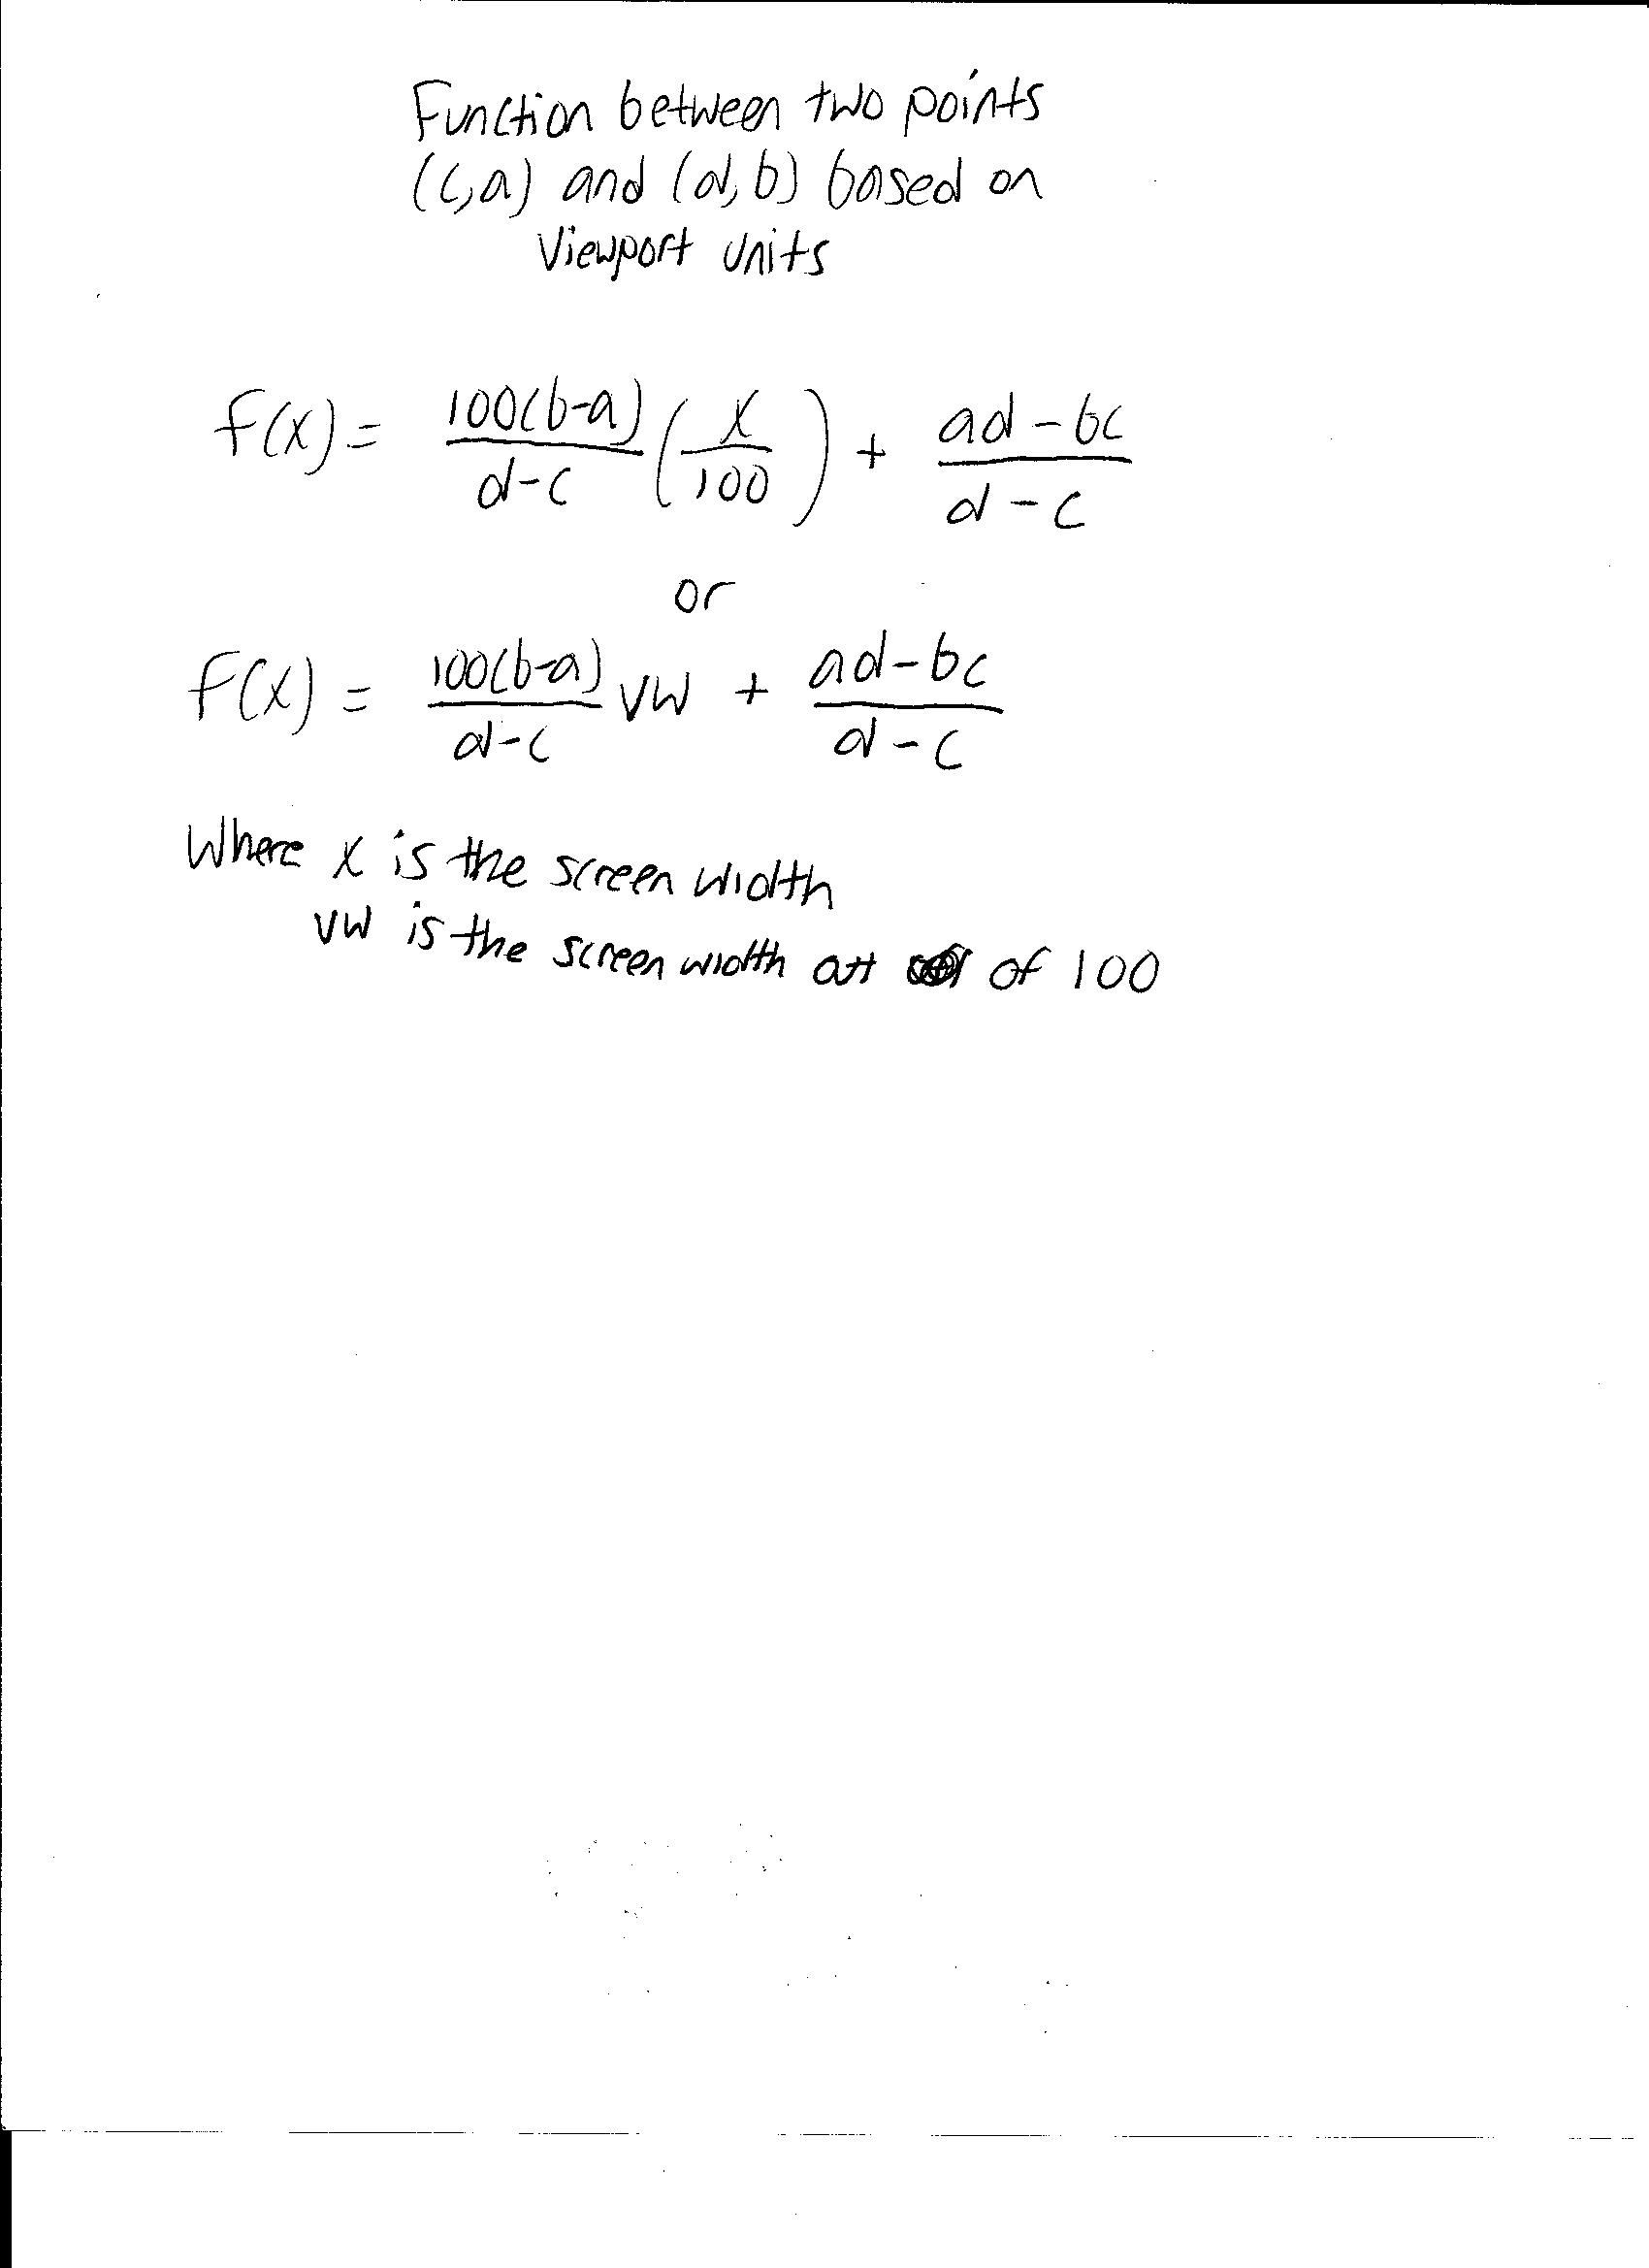 Function between two points
(c,a) and (d,b) based on
Viewport units
f(x) = 100(b-a)/d-c (x/100) + ad-bc/d-c
or
f(x) = 100(b-a)/d-c vw + ad-bc/d-c
Where x is the screen width
vw is the screen width out of 100